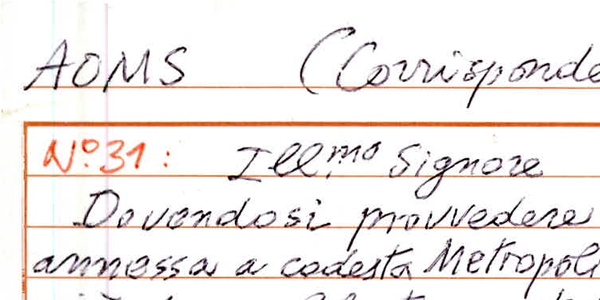 AOMS (Corrisponde
N.º 31: Ill.mo Signore
Dovendosi provvedere
annessa a codesta Metropoli